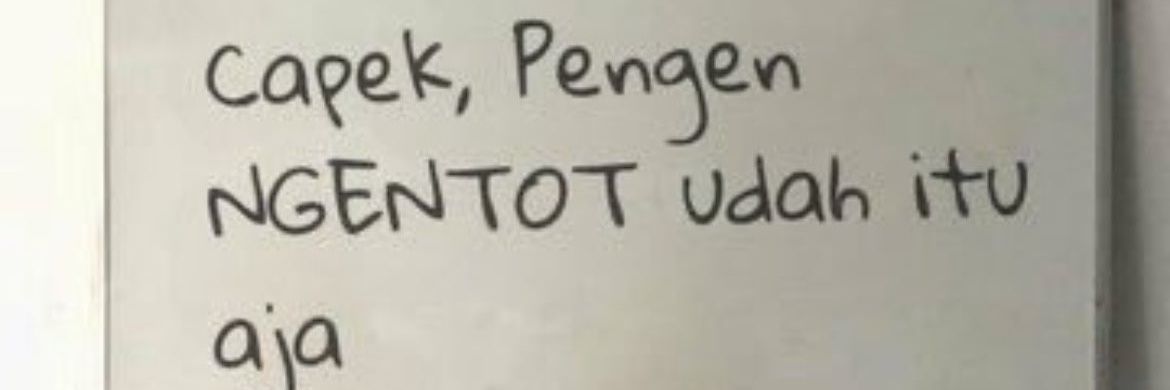 Capek, Pengen
NGENTOT udah itu
aja